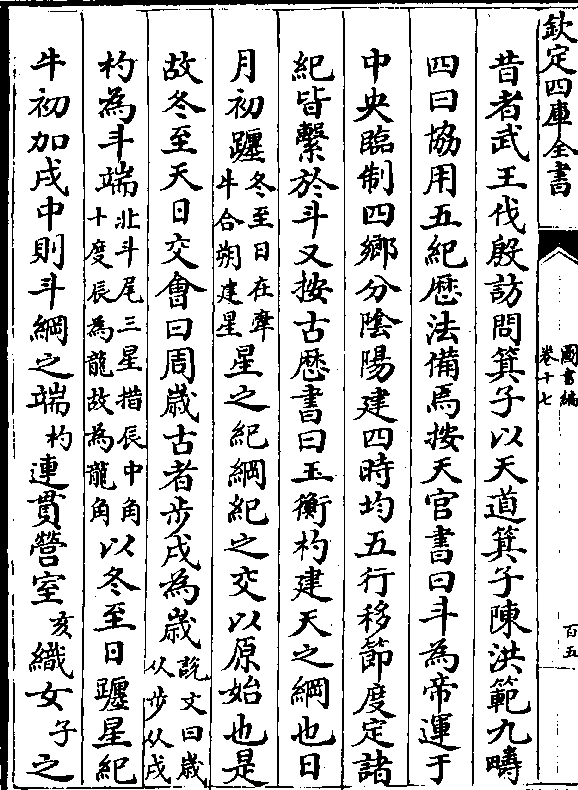 欽定四庫全書
圖書編
卷十七
百五
昔者武王伐殷訪問箕子以天道箕子陳洪範九疇
四曰協用五紀厯法備焉按天官書曰斗為帝運于
中央臨制四鄉分陰陽建四時均五行移節度定諸
紀皆繫於斗又按古厯書曰玉衡杓建天之綱也日
月初躔冬至日在牽牛合朔建星星之紀綱紀之交以原始也是
故冬至天日交會曰周歲古者步戌為歲說文曰歲从步从戌
杓為斗端北斗尾三星揩辰中角十度辰為龍故為龍角以冬至日躔星紀
牛初加戌中則斗綱之端杓連貫營室亥織女子之